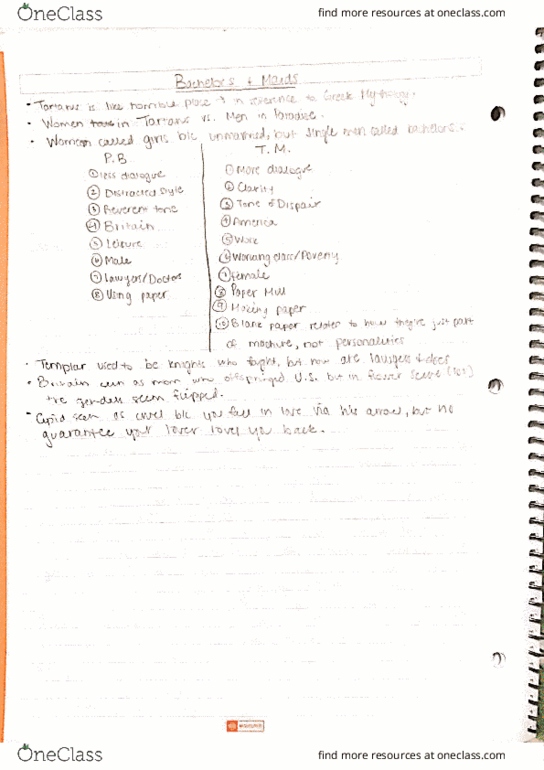 OneClass
find more resources at oneclass.com
Bachelors + Maids
• Tartarus is like horrible place + in reference to Greek Mythology.
• Women in Tartarus vs. Men in Paradise.
• Women called girls b/c unmarried, but single men called bachelors.
P.B.
T.M.
① less dialogue
② Distracted Style
③ Reverent tone
④ Britain
⑤ Leisure
⑥ Male
⑦ Lawyers/Doctors
⑧ Using paper
① More dialogue
② Clarity
③ Tone of Dispair
④ America
⑤ Work
⑥ Working class/Poverty
⑦ female
⑧ Paper Mill
⑨ Making paper
⑩ Blank paper relates to how they're just part
of machine, not personalities
• Templar used to be knights who fought, but now are lawyers + docs
• Britain seen as mom who U.S. but in flower scene
the genders seem flipped.
• Cupid seen as cruel b/c you fall in love via his arrow, but no
guarantee your lover loves you back.
OneClass
find more resources at oneclass.com